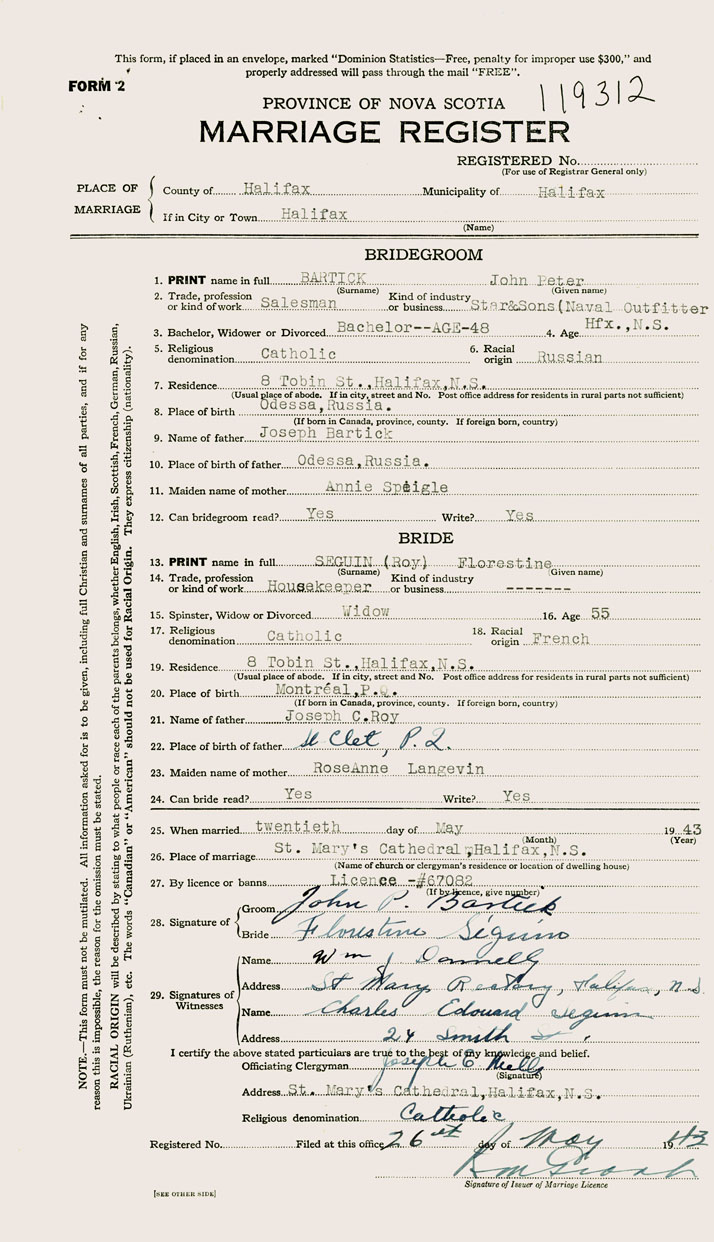 This form, if placed in an envelope, marked "Dominion Statistics—Free, penalty for improper use $300," and
properly addressed will pass through the mail "FREE".
FORM 2
119312
PROVINCE OF NOVA SCOTIA
MARRIAGE REGISTER
REGISTERED No.
(For use of Registrar General only)
PLACE OF MARRIAGE
County of Halifax Municipality of Halifax
If in City or Town Halifax
(Name)
BRIDEGROOM
1. PRINT name in full BARTICK John Peter
(Surname) (Given name)
2. Trade, profession or kind of work Salesman Kind of industry or business Star&Sons(Naval Outfitter
3. Bachelor, Widower or Divorced Bachelor--AGE-48 4. Age Hfx.,N.S.
5. Religious denomination Catholic 6. Racial origin Russian
7. Residence 8 Tobin St.,Halifax,N.S.
(Usual place of abode. If in city, street and No. Post office address for residents in rural parts not sufficient)
8. Place of birth Odessa,Russia.
(If born in Canada, province, county. If foreign born, country)
9. Name of father Joseph Bartick
10. Place of birth of father Odessa,Russia.
11. Maiden name of mother Annie Speigle
12. Can bridegroom read? Yes Write? Yes
BRIDE
13. PRINT name in full SEGUIN (Roy) Florestine
(Surname) (Given name)
14. Trade, profession or kind of work Housekeeper Kind of industry or business -------
15. Spinster, Widow or Divorced Widow 16. Age 55
17. Religious denomination Catholic 18. Racial origin French
19. Residence 8 Tobin St.,Halifax,N.S.
(Usual place of abode. If in city, street and No. Post office address for residents in rural parts not sufficient)
20. Place of birth Montréal,P.Q.
(If born in Canada, province, county. If foreign born, country)
21. Name of father Joseph C.Roy
22. Place of birth of father St Clet, P.Q.
23. Maiden name of mother RoseAnne Langevin
24. Can bride read? Yes Write? Yes
25. When married twentieth day of May 1943
(Month) (Year)
26. Place of marriage St. Mary's Cathedral,Halifax,N.S.
(Name of church or clergyman's residence or location of dwelling house)
27. By licence or banns Licence -#67082
(If by licence, give number)
28. Signature of Groom John P. Bartick
Bride Florestine Séguin
29. Signatures of Witnesses
Name Wm J Donnelly
Address St Mary Rectory, Halifax, N.S.
Name Charles Edouard Seguin
Address 24 Smith St.
I certify the above stated particulars are true to the best of my knowledge and belief.
Officiating Clergyman Joseph E Mills
(Signature)
Address St. Mary's Cathedral,Halifax,N.S.
Religious denomination Catholic
Registered No. Filed at this office 26 day of May 1943
Signature of Issuer of Marriage Licence
[SEE OTHER SIDE]
NOTE.—This form must not be mutilated. All information asked for is to be given, including full Christian and surnames of all parties, and if for any
reason this is impossible, the reason for the omission must be stated.
RACIAL ORIGIN will be described by stating to what people or race each of the parents belongs, whether English, Irish, Scottish, French, German, Russian,
Ukrainian (Ruthenian), etc. The words "Canadian" or "American" should not be used for Racial Origin. They express citizenship (nationality).